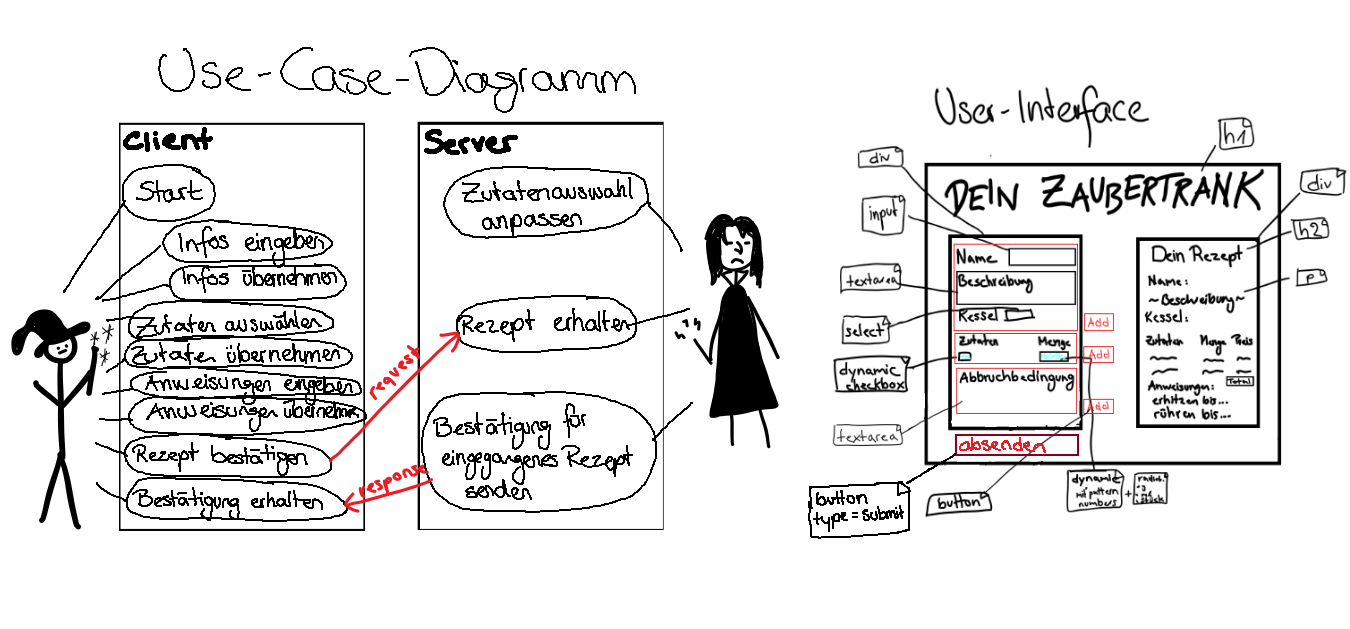 Use-Case-Diagramm
Client
Start
Infos eingeben
Infos übernehmen
Zutaten auswählen
Zutaten übernehmen
Anweisungen eingeben
Anweisungen übernehm
Rezept bestätigen
Bestätigung erhalten
request
response
Server
Zutatenauswahl
anpassen
Rezept erhalten
Bestätigung für
eingegangenes Rezept
senden
User-Interface
h1
div
input
textarea
select
dynamic
checkbox
textarea
button
type = submit
button
dynamic
mit pattern
numbers
+
div
h2
p
DEIN ZAUBERTRANK
Name
Beschreibung
Kessel
Add
Zutaten Menge
Add
Abbruchbedingung
Add
absenden
Dein Rezept
Name:
~Beschreibung~
Kessel:
Zutaten Menge Preis
Total
Anweisungen:
erhitzen bis...
rühren bis...